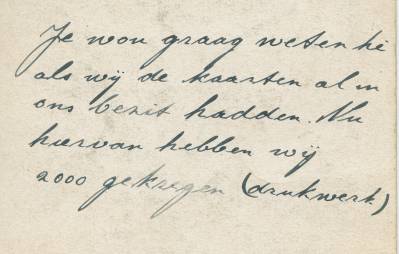 Je wou graag weten hè
als wij de kaarten al in
ons bezit hadden. Nu
hiervan hebben wij
2000 gekregen (drukwerk)